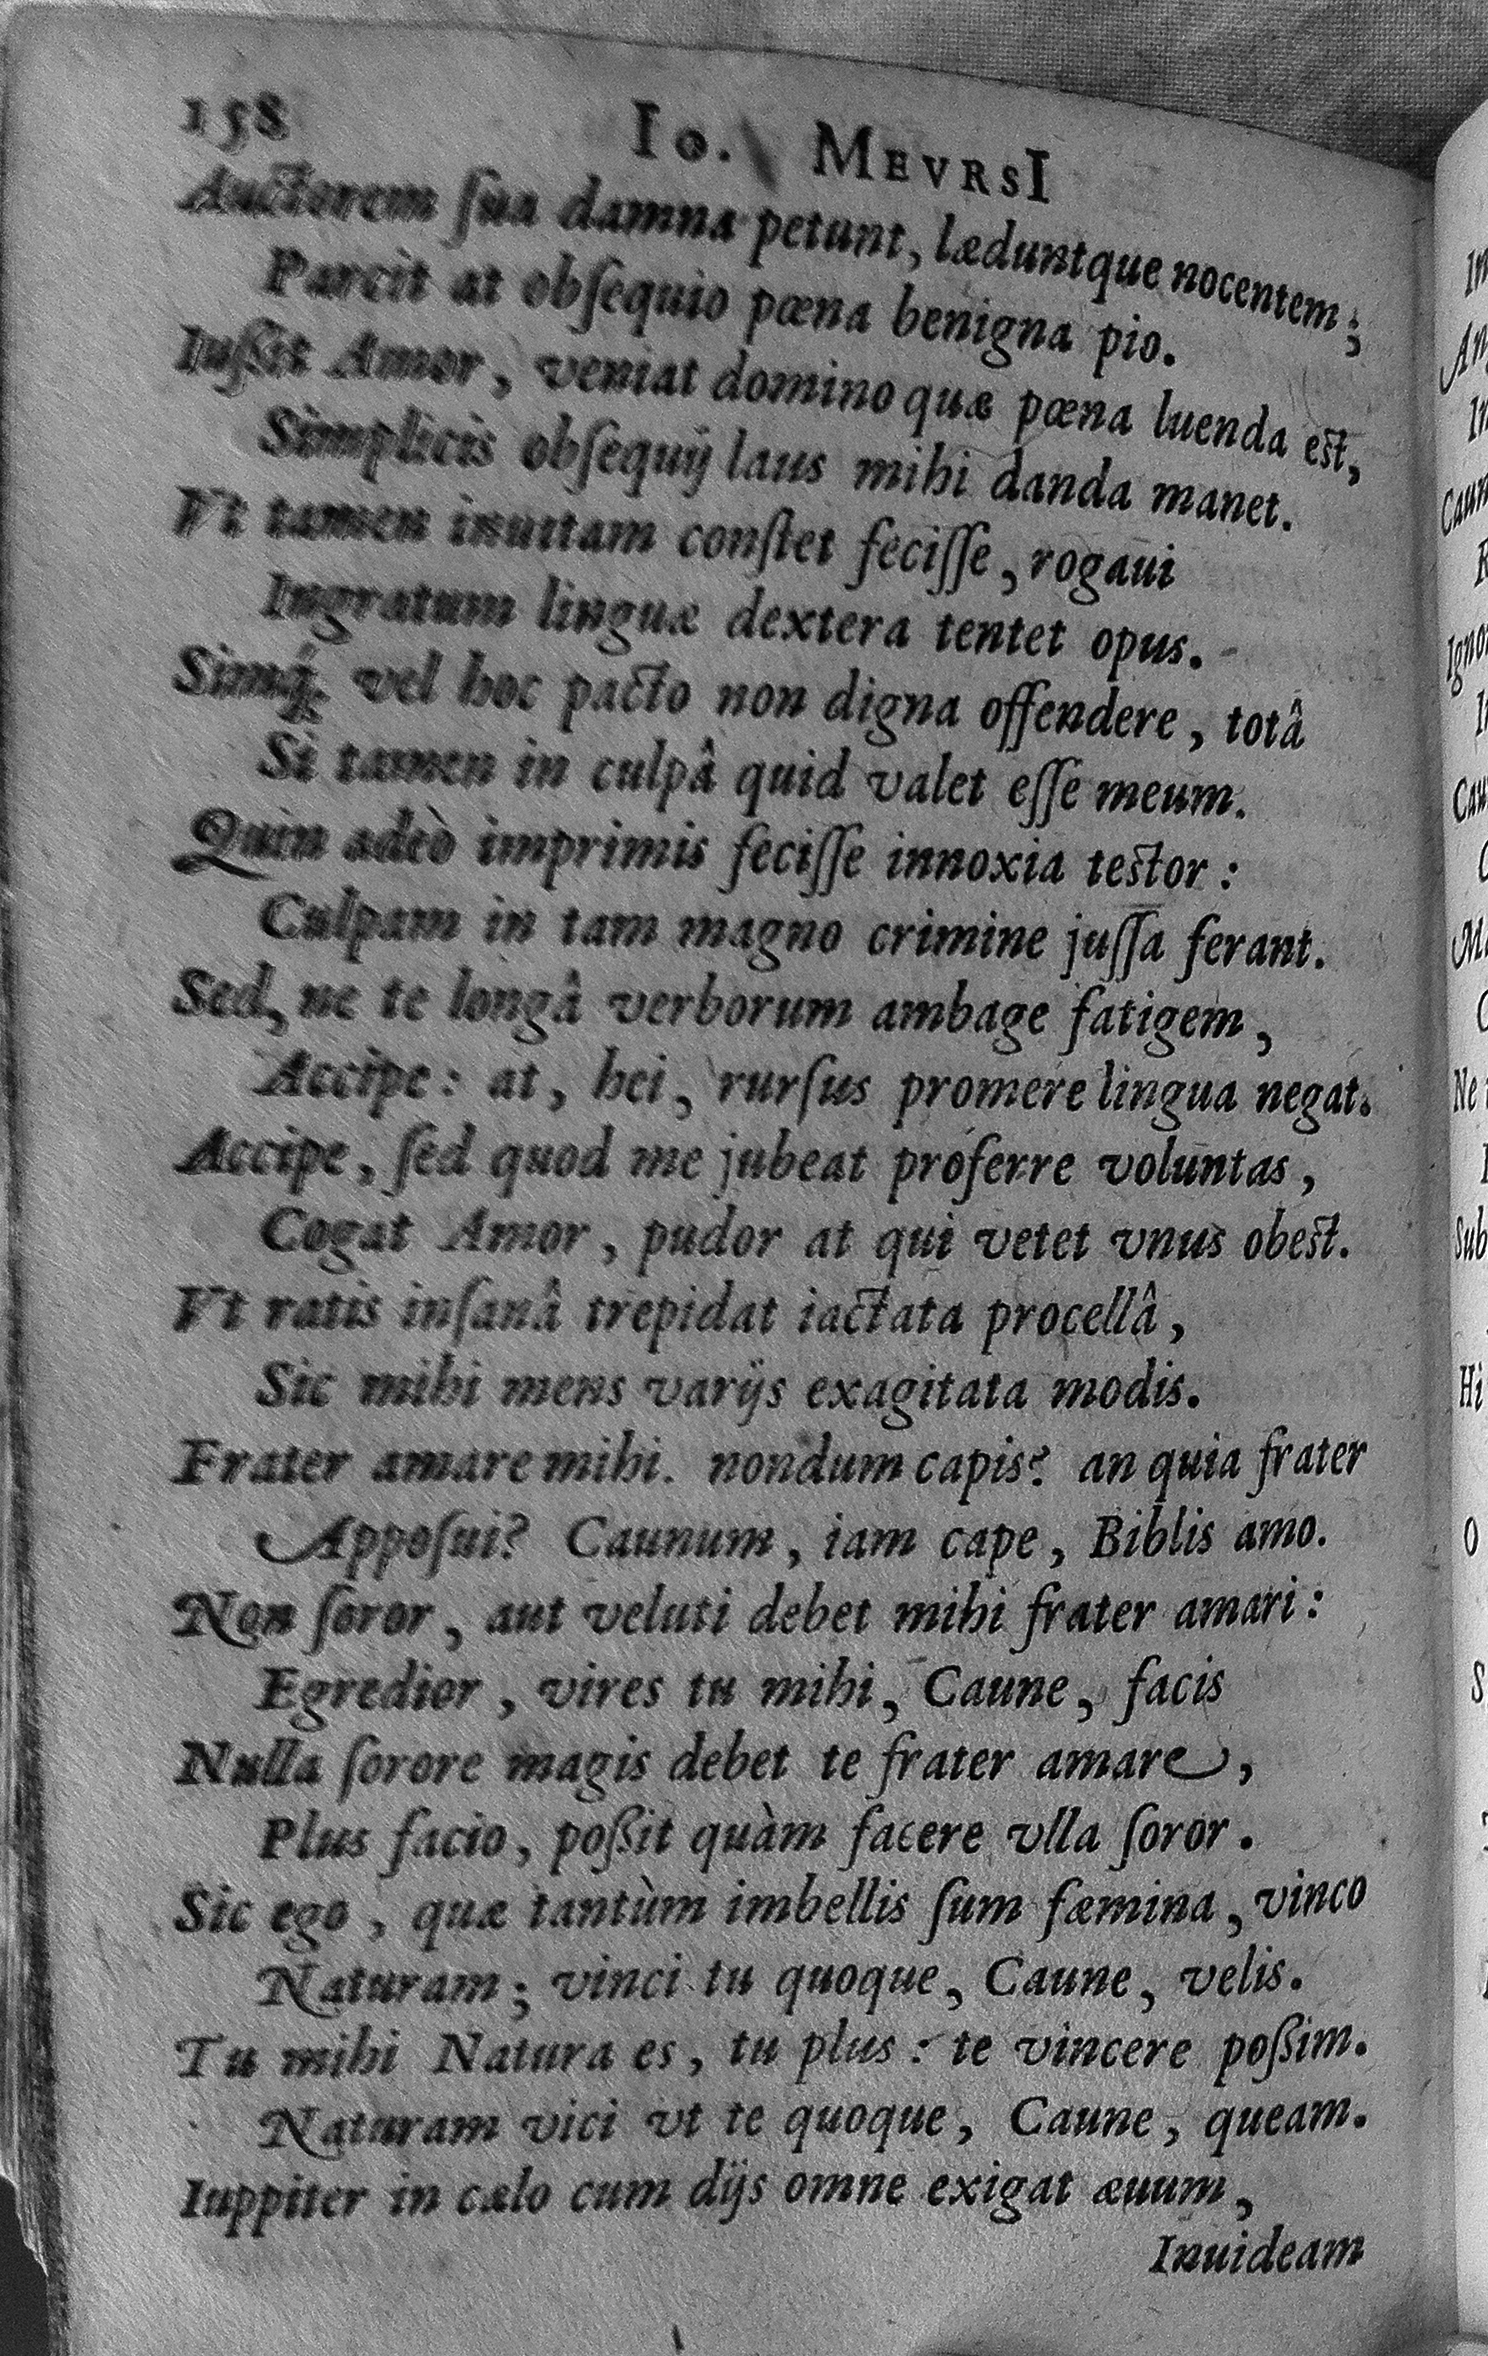 158 Io. MEVRSI
Auctorem ſua damna petunt, læduntque nocentem;
Parcit at obſequio pœna benigna pio.
Iuſsit Amor, veniat domino quæ pœna luenda est,
Simplicis obſequij laus mihi danda manet.
Vt tamen inuitam conſtet feciſſe, rogaui
Ingratum linguæ dextera tentet opus.
Simq́; vel hoc pacto non digna offendere, totâ
Si tamen in culpâ quid valet eſſe meum.
Quin adeò imprimis feciſſe innoxia testor:
Culpam in tam magno crimine juſſa ferant.
Sed, ne te longâ verborum ambage fatigem,
Accipe: at, hei, rurſus promere lingua negat.
Accipe, ſed quod me jubeat proferre voluntas,
Cogat Amor, pudor at qui vetet vnus obest.
Vt ratis inſanâ trepidat iactata procellâ,
Sic mihi mens varijs exagitata modis.
Frater amare mihi. nondum capis? an quia frater
Appoſui? Caunum, iam cape, Biblis amo.
Non ſoror, aut veluti debet mihi frater amari:
Egredior, vires tu mihi, Caune, facis
Nulla ſorore magis debet te frater amare,
Plus facio, poßit quàm facere vlla ſoror.
Sic ego, quæ tantùm imbellis ſum fæmina, vinco
Naturam; vinci tu quoque, Caune, velis.
Tu mihi Natura es, tu plus: te vincere poßim.
Naturam vici vt te quoque, Caune, queam.
Iuppiter in cælo cum dijs omne exigat æuum,
Inuideam